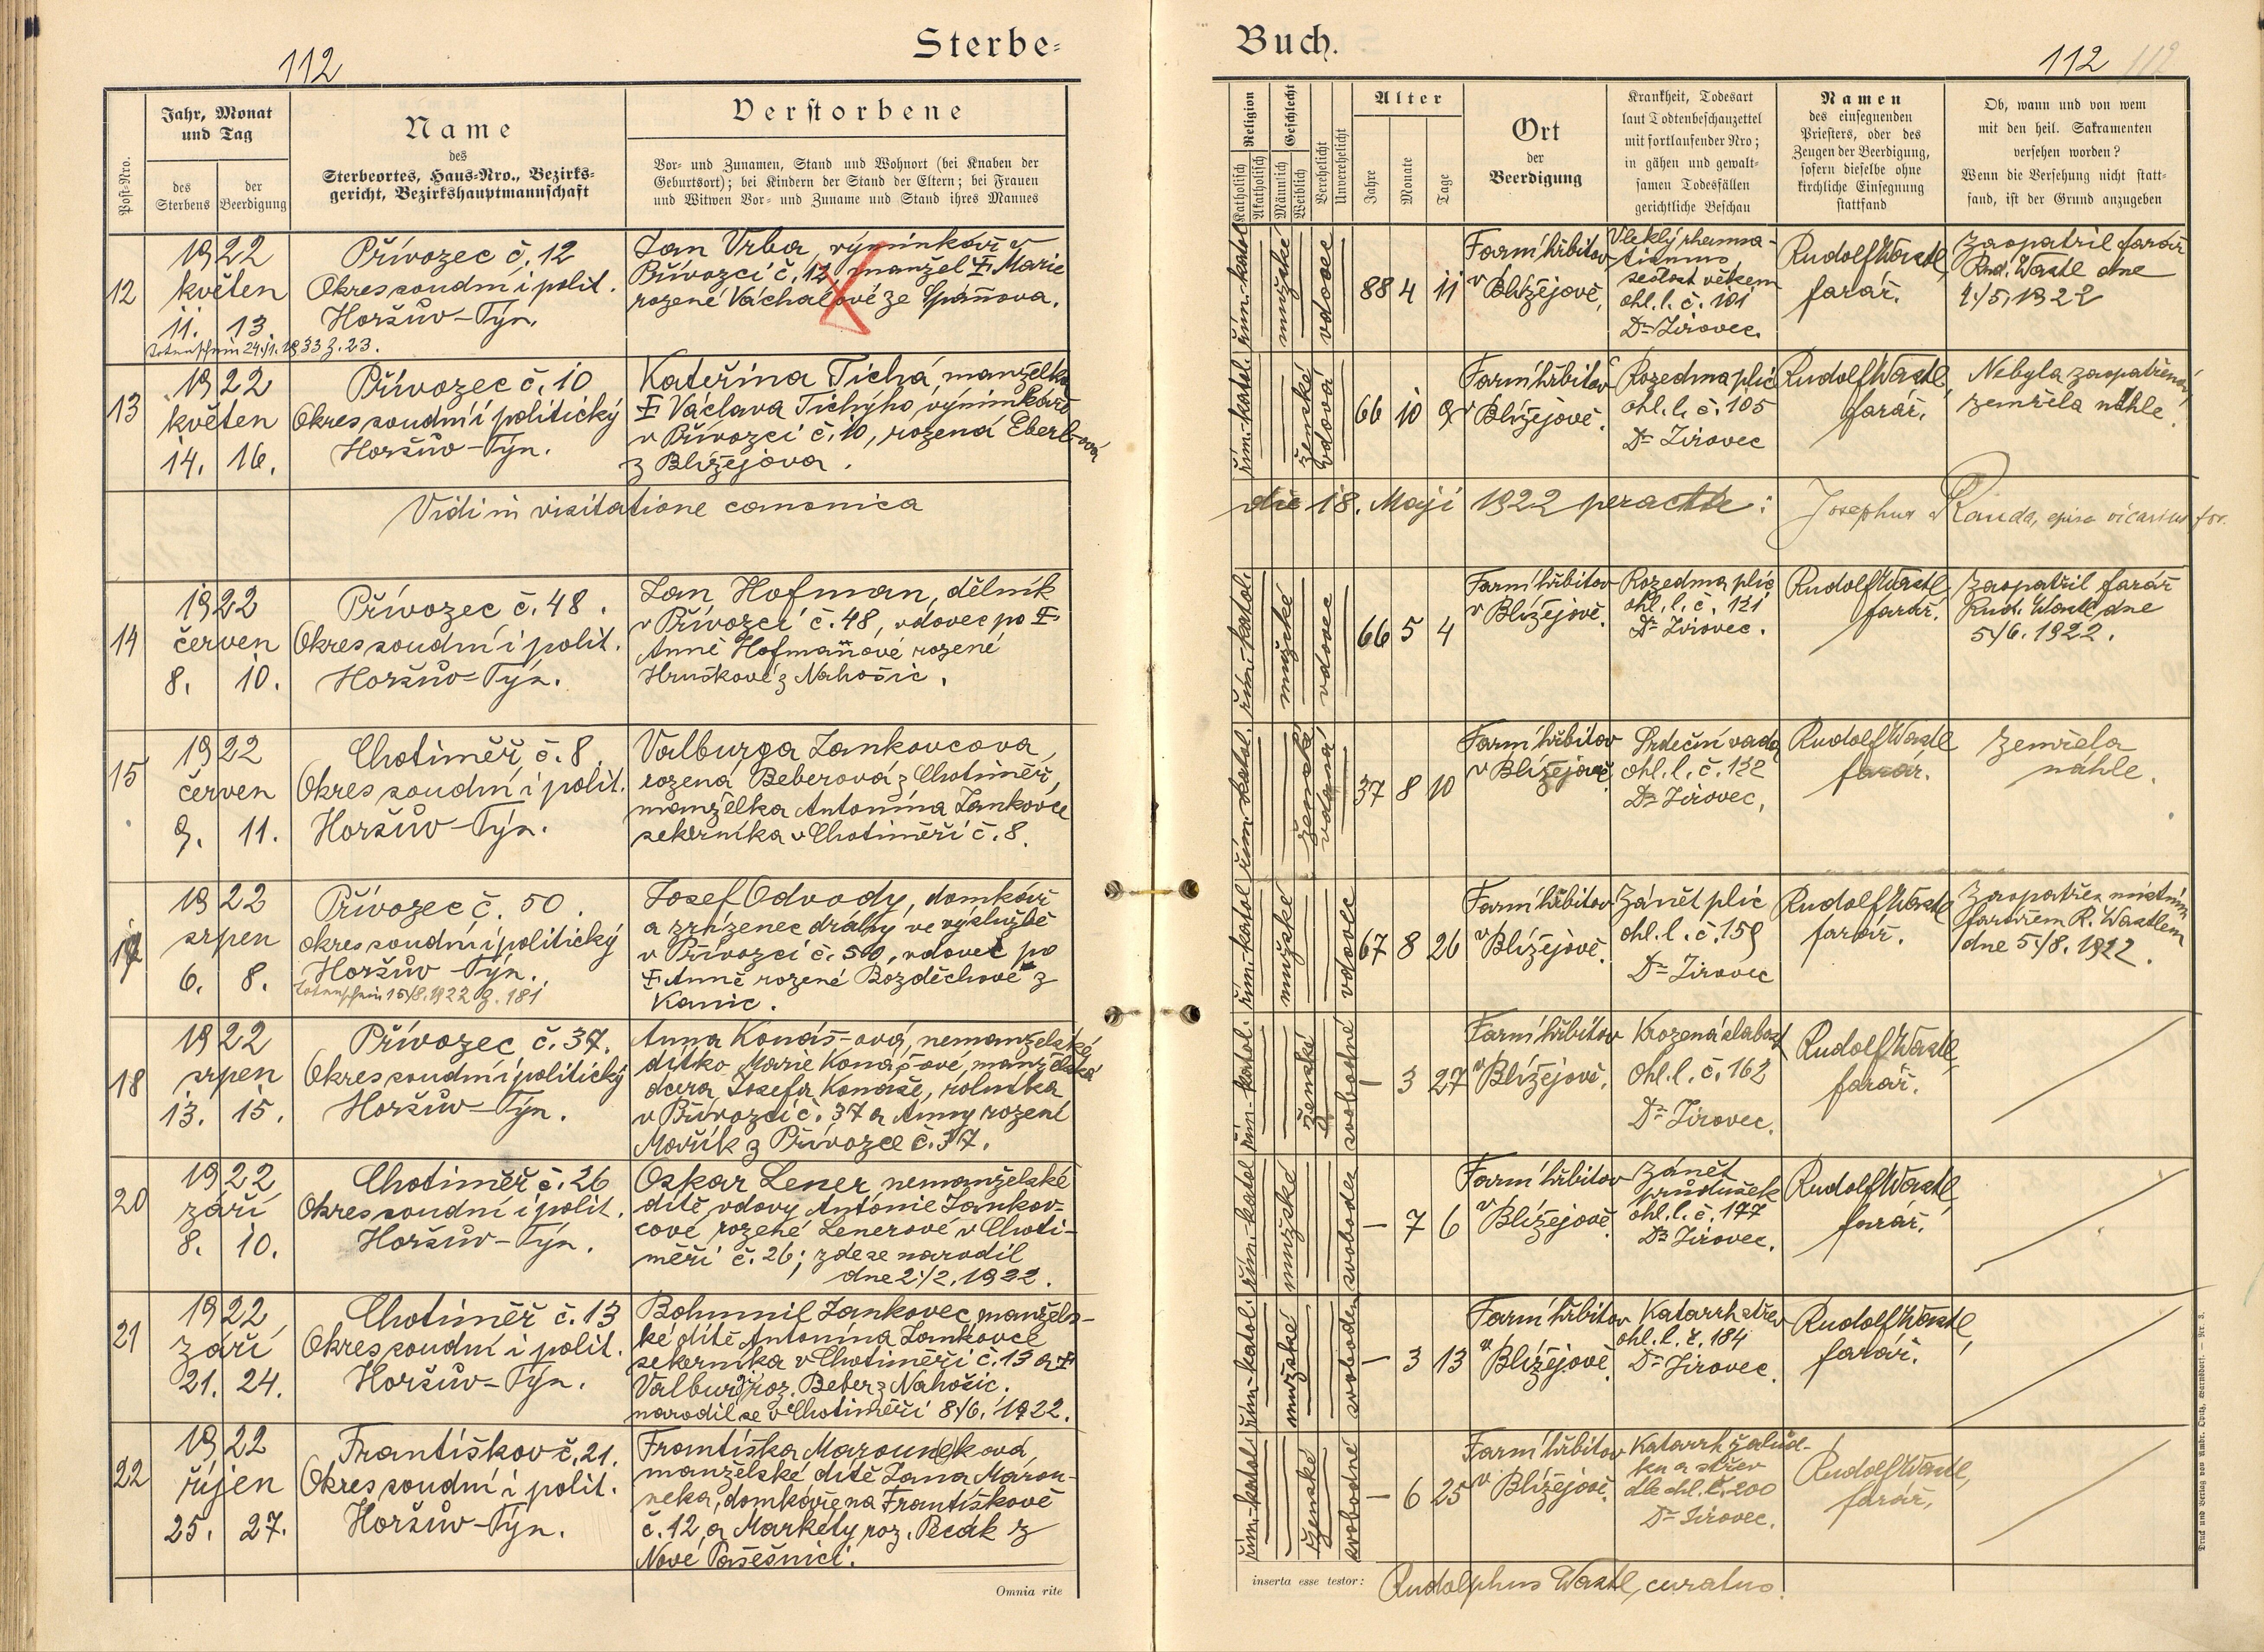 112
Sterbe-
Buch.
112
112
Post-Nro.
Jahr, Monat
und Tag
des
Sterbens
der
Beerdigung
Name
des
Sterbeortes, Haus-Nro., Bezirks-
gericht, Bezirkshauptmannschaft
Verstorbene
Vor- und Zunamen, Stand und Wohnort (bei Knaben der
Geburtsort); bei Kindern der Stand der Eltern; bei Frauen
und Witwen Vor- und Zuname und Stand ihres Mannes
Religion
Katholisch
Akatholisch
Geschlecht
Männlich
Weiblich
Verehelicht
Unverehelicht
Alter
Jahre
Monate
Tage
Ort
der
Beerdigung
Krankheit, Todesart
laut Todtenbeschauzettel
mit fortlaufender Nro;
in gähen und gewalt-
samen Todesfällen
gerichtliche Beschau
Namen
des einsegnenden
Priesters, oder des
Zeugen der Beerdigung,
sofern dieselbe ohne
kirchliche Einsegnung
stattfand
Ob, wann und von wem
mit den heil. Sakramenten
versehen worden?
Wenn die Versehung nicht statt-
fand, ist der Grund anzugeben
12
1922
květen
11. 13.
Totenschein 24./1. 1933 z. 23.
Přívozec č. 12
Okres soudní i polit.
Horšův-Týn.
Jan Vrba, výminkář v
Přívozci č. 12, manžel † Marie
rozené Váchalové ze Spáňova.
řím.-katol.
mužské
vdovec
88 4 11
Farní hřbitov
v Blížejově,
Vleklý rheuma-
tismus
sešlost věkem
ohl. l. č. 101
Dr Jirovec.
Rudolf Wastl,
farář.
Zaopatřil farář
Rud. Wastl dne
4./5. 1922
13
1922
květen
14. 16.
Přívozec č. 10
Okres soudní i politický
Horšův-Týn.
Kateřina Tichá, manželka
† Václava Tichýho, výminkáře
v Přívozci č. 10, rozená Eberl-ová
z Blížejova.
řím.-katol.
ženské
vdova
66 10 9
Farní hřbitov
v Blížejově.
Rozedma plic
ohl. l. č. 105
Dr Jirovec
Rudolf Wastl,
farář.
Nebyla zaopatřena,
zemřela náhle.
Vidi in visitatione canonica
die 18. Maji 1922 peracta:
Josephus Rauda, episc. vicarius for.
14
1922
červen
8. 10.
Přívozec č. 48.
Okres soudní i polit.
Horšův-Týn.
Jan Hofman, dělník
v Přívozci č. 48, vdovec po †
Anně Hofmañové rozené
Hruškové z Nahošic.
řím.-katol.
mužské
vdovec
66 5 4
Farní hřbitov
v Blížejově.
Rozedma plic
ohl. l. č. 121
Dr Jirovec.
Rudolf Wastl,
farář.
Zaopatřil farář
Rud. Wastl dne
5./6. 1922.
15
1922
červen
9. 11.
Chotiměř č. 8
Okres soudní i polit.
Horšův-Týn.
Valburga Jankovcová,
rozená Beberová z Chotiměř,
manželka Antonína Jankovce
sekerníka v Chotiměři č. 8.
řím. katol.
ženská
vdaná
37 8 10
Farní hřbitov
v Blížejově.
Srdeční vada
ohl. l. č. 122
Dr Jirovec,
Rudolf Wastl
farář.
Zemřela
náhle.
17
1922
srpen
6. 8.
Přívozec č. 50.
okres soudní i politický
Horšův-Týn.
Totenschein 15./8. 1922 z. 181
Josef Odvody, domkář
a zřízenec dráhy ve výslužbě
v Přívozci č. 50, vdovec po
† Anně rozené Bozděchové z
Kanic.
řím.-katol
mužské
vdovec
67 8 26
Farní hřbitov
v Blížejově.
Zánět plic
ohl. l. č. 159
Dr Jirovec
Rudolf Wastl
farář.
Zaopatřen místním
farářem R. Wastlem
dne 5./8. 1922.
18
1922
srpen
13. 15.
Přívozec č. 37.
Okres soudní i politický
Horšův-Týn.
Anna Konáš-ová, nemanželské
dítko Marie Konášové, manželská
dcera Josefa Konáše, rolníka
v Přívozci č. 37 a Anny rozené
Mařík z Přívozce č. 37.
řím.-katol.
ženské
svobodné
- 3 27
Farní hřbitov
v Blížejově.
Vrozená slabost
Ohl. l. č. 162
Dr Jirovec.
Rudolf Wastl,
farář.
20
1922
září
8. 10.
Chotiměř č. 26
Okres soudní i polit.
Horšův-Týn.
Oskar Lener nemanželské
dítě vdovy Antonie Jankov-
cové, rozené Lenerové v Choti-
měři č. 26; zde se narodil
dne 2./2. 1922.
řím.-katol
mužské
svoboden
- 7 6
Farní hřbitov
v Blížejově.
Zánět
průdušek
ohl. l. č. 177
Dr Jirovec.
Rudolf Wastl,
farář.
21
1922
září
21. 24.
Chotiměř č. 13
Okres soudní i polit.
Horšův-Týn.
Bohumil Jankovec, manžels-
ké dítě Antonína Jankovce
sekerníka v Chotiměři č. 13 a †
Valburgy roz. Beber z Nahošic,
narodil se v Chotiměři 8./6. 1922.
řím.-katol.
mužské
svoboden
- 3 13
Farní hřbitov
v Blížejově
Katarrh střev
ohl. l. č. 184
Dr Jirovec.
Rudolf Wastl,
farář.
22
1922
říjen
25. 27.
Františkov č. 21.
Okres soudní i polit.
Horšův-Týn.
Františka Marounek ová,
manželské dítě Jana Maroun-
neka, domkáře na Františkově
č. 12, a Markéty roz. Pecák z
Nové Pasešnici.
řím.-katol.
ženské
svobodné
- 6 25
Farní hřbitov
v Blížejově.
Katarrh žalud-
ku a střev
dle ohl. č. 200
Dr Jirovec.
Rudolf Wastl,
farář,
Omnia rite
inserta esse testor:
Rudolphus Wastl, curatus.
Druck und Verlag von Ambr. Opitz, Warnsdorf. — Nr. 3.